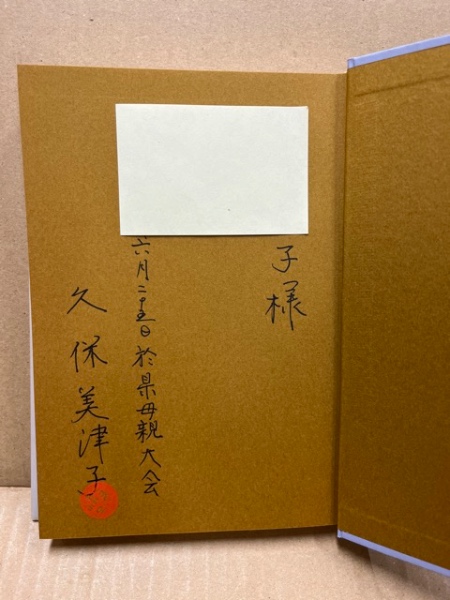 子様
六月二十五日於県母親大会
久保美津子